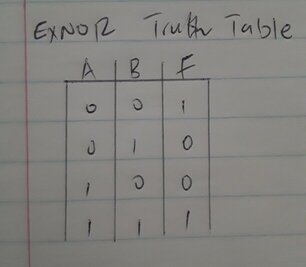 EXNOR Truth Table
A B F
0 0 1
0 1 0
1 0 0
1 1 1